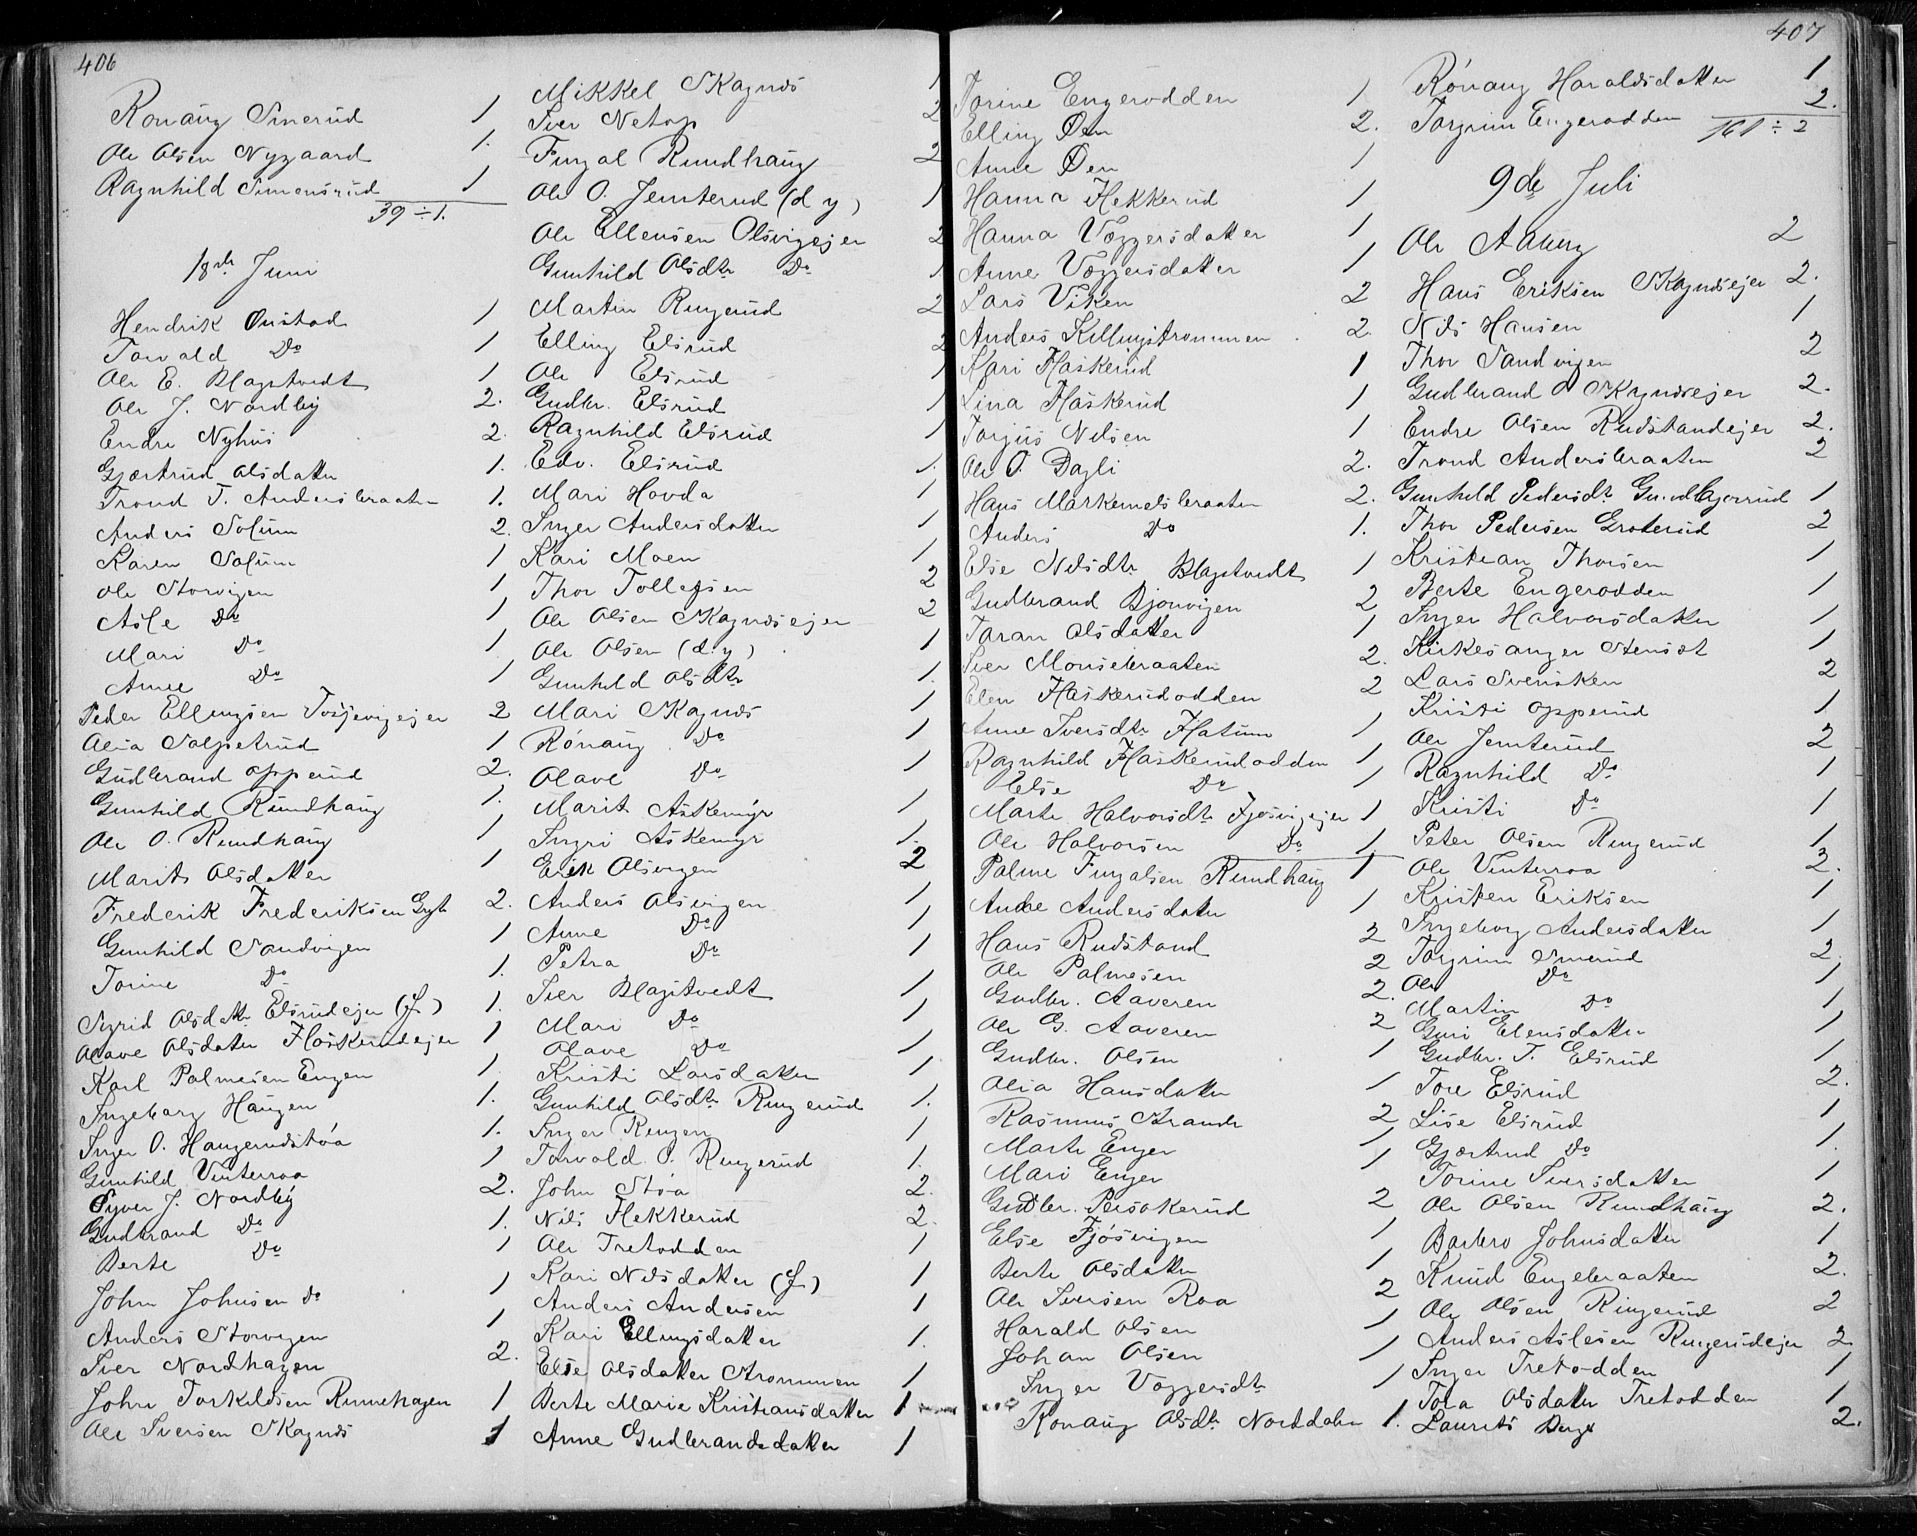 406
Ronaug Smerud 1
Ole Olsen Nygaard 1.
Ragnhild Simensrud 1
39 ÷ 1.
18de Juni
Hendrik Onstad 1
Torvald Do 1
Ole E. Blagstvedt 1
Ole J. Nordby 2.
Endre Nyhus 2.
Gjærtrud Olsdatter 1.
Trond T. Andersbraaten 1.
Anders Solum 2.
Karen Solum 1
Ole Storvigen 1
Asle Do 1
Mari Do 1
Anne Do 1
Peder Ellingsen 2
Olia Solpetrud 1
Gudbrand Opperud 2.
Gunhild Rundhaug 1.
Ole O. Rundhaug 1
Marit Olsdatter 1
Frederik Frederiksen 2.
Gunhild Sandvigen 1
Torine Do 1.
Sigrid Olsdatter Elsrudejer (f) 1.
Olave Olsdatter Flaskerudejer 1
Karl Palmesen Engen 1.
Ingeborg Haugen 1.
Inger O. Haugerudstøa 1.
Gunhild Vinterroa 1
Syver J. Nordby 2.
Gudbrand Do 1.
Berte Do 1
John Johnsen Do 1
Anders Storvigen 1
Iver Nordhagen 2.
John Torkildsen Runnehagen 1
Ole Iversen Skagnæs 1
Mikkel Skagnæs 1
Iver Netop 2
Fingal Rundhaug 2
Ole O. Jemterud (d y) 1
Ole Ellensen Olsvigejer 2
Gunhild Olsdtr Do 1
Martin Ringerud 2
Elling Elsrud 2
Ole Elsrud 1
Gudbr. Elsrud 1
Ragnhild Elsrud 1
Edv. Elsrud 1.
Mari Hovda 1
Inger Andersdatter 1
Kari Moen 1
Thor Tollefsen 2
Ole Olsen Skagnæsejer 2
Ole Olsen (d.y) 1
Gunhild Olsdtr 1.
Mari Skagnæs 1
Rønaug Do 1
Olave Do 1
Marit Askemyr 1
Ingri Askemyr 1.
Erik Olsvigen 2
Anders Olsvigen 1
Anne Do 1
Petra Do 1
Iver Blagstvedt 1
Mari Do 1
Olave Do 1
Kristi Larsdatter 1
Gunhild Olsdtr Ringerud 1.
Inger Ringen 1
Torvald O. Ringerud 1.
John Støa 2.
Nils Hekkerud 2.
Ole Tretodden 1
Kari Nilsdatter (f) 1
Anders Andersen 1
Kari Ellingsdatter 1.
Else Olsdatter Strømmen 1
Berte Marie Kristiansdatter 1
Anne Gudbrandsdatter 1
407
Torine Engerodden 1
Elling Øen 2.
Anne Øen 1
Hanna Hekkerud 1
Hanna Vøggersdatter 1
Anne Vøggersdatter 1
Lars Viken 2
Anders Killingstrømmen 2.
Kari Flaskerud 1
Lina Flaskerud 1
Torjus Nilsen 1
Ole O. Dagli 2.
Hans Markemelsbraaten 2.
Anders Do 1.
Else Nilsdtr Blagstvedt 1
Gudbrand Bjonvigen 2
Taran Olsdatter 1
Iver Monsebraaten 2.
Elen Flaskerudodden 2
Anne Iversdtr Flatum 1
Ragnhild Flaskerudodden 1
Else Do 1
Marte Halvorsdtr Fjøsvigejer 1
Ole Halvorsen Do 1
Palme Fingalsen Rundhaug 1
Anne Andersdatter 1
Hans Rudstand 2
Ole Palmesen 2
Gudbr. Aaveren 2.
Ole G. Aaveren 2
Gudbr. Olsen 1
Olia Hansdatter 1
Rasmus Strande 2
Marte Enger 1
Mari Enger 1
Gudbr. Persokerud 2
Else Fjøsvigen 1
Berte Olsdatter 1
Ole Iversen Roa 2
Harald Olsen 1
Johan Olsen 1
Inger Vøggersdtr 1
Ronaug Olsdtr Norddalen 1.
Rónaug Haraldsdatter 1
Torgrim Engerodden 2.
161 ÷ 2
9de Juli
Ole Aaberg 2
Hans Eriksen Skagnæsejer 2.
Nils Hansen 1
Thor Sandvigen 2
Gudbrand O Skagnæsejer 2.
Endre Olsen Rudstandejer 2.
Trond Andersbraaten 2
Gunhild Pedersdtr 1
Thor Pedersen Groterud 2
Kristian Thorsen 1
Berte Engerodden 1
Inger Halvorsdatter 1
Kirkesanger Stensæt 1
Lars Svensken 2
Kristi Opperud 1
Ole Jemterud 2
Ragnhild Do 1
Kristi Do 1
Peter Olsen Ringerud 1
Ole Vinterroa 2.
Kristen Eriksen 1
Ingeborg Andersdatter 1
Torgrim Smerud 2.
Ole Do 1
Martin Do 1
Guri Elensdatter 1
Gudbr. T. Elsrud 1
Tore Elsrud 2.
Lise Elsrud 1
Gjærtrud Do 1.
Torine Iversdatter 1
Ole Olsen Rundhaug 2.
Barbro Johnsdatter 1
Knud Engebraaten 2.
Ole Olsen Ringerud 2
Anders Aslesen Ringerudejer 2
Inger Tretodden 1
Tora Olsdatter Tretodden 1
Laurits Berg 2.